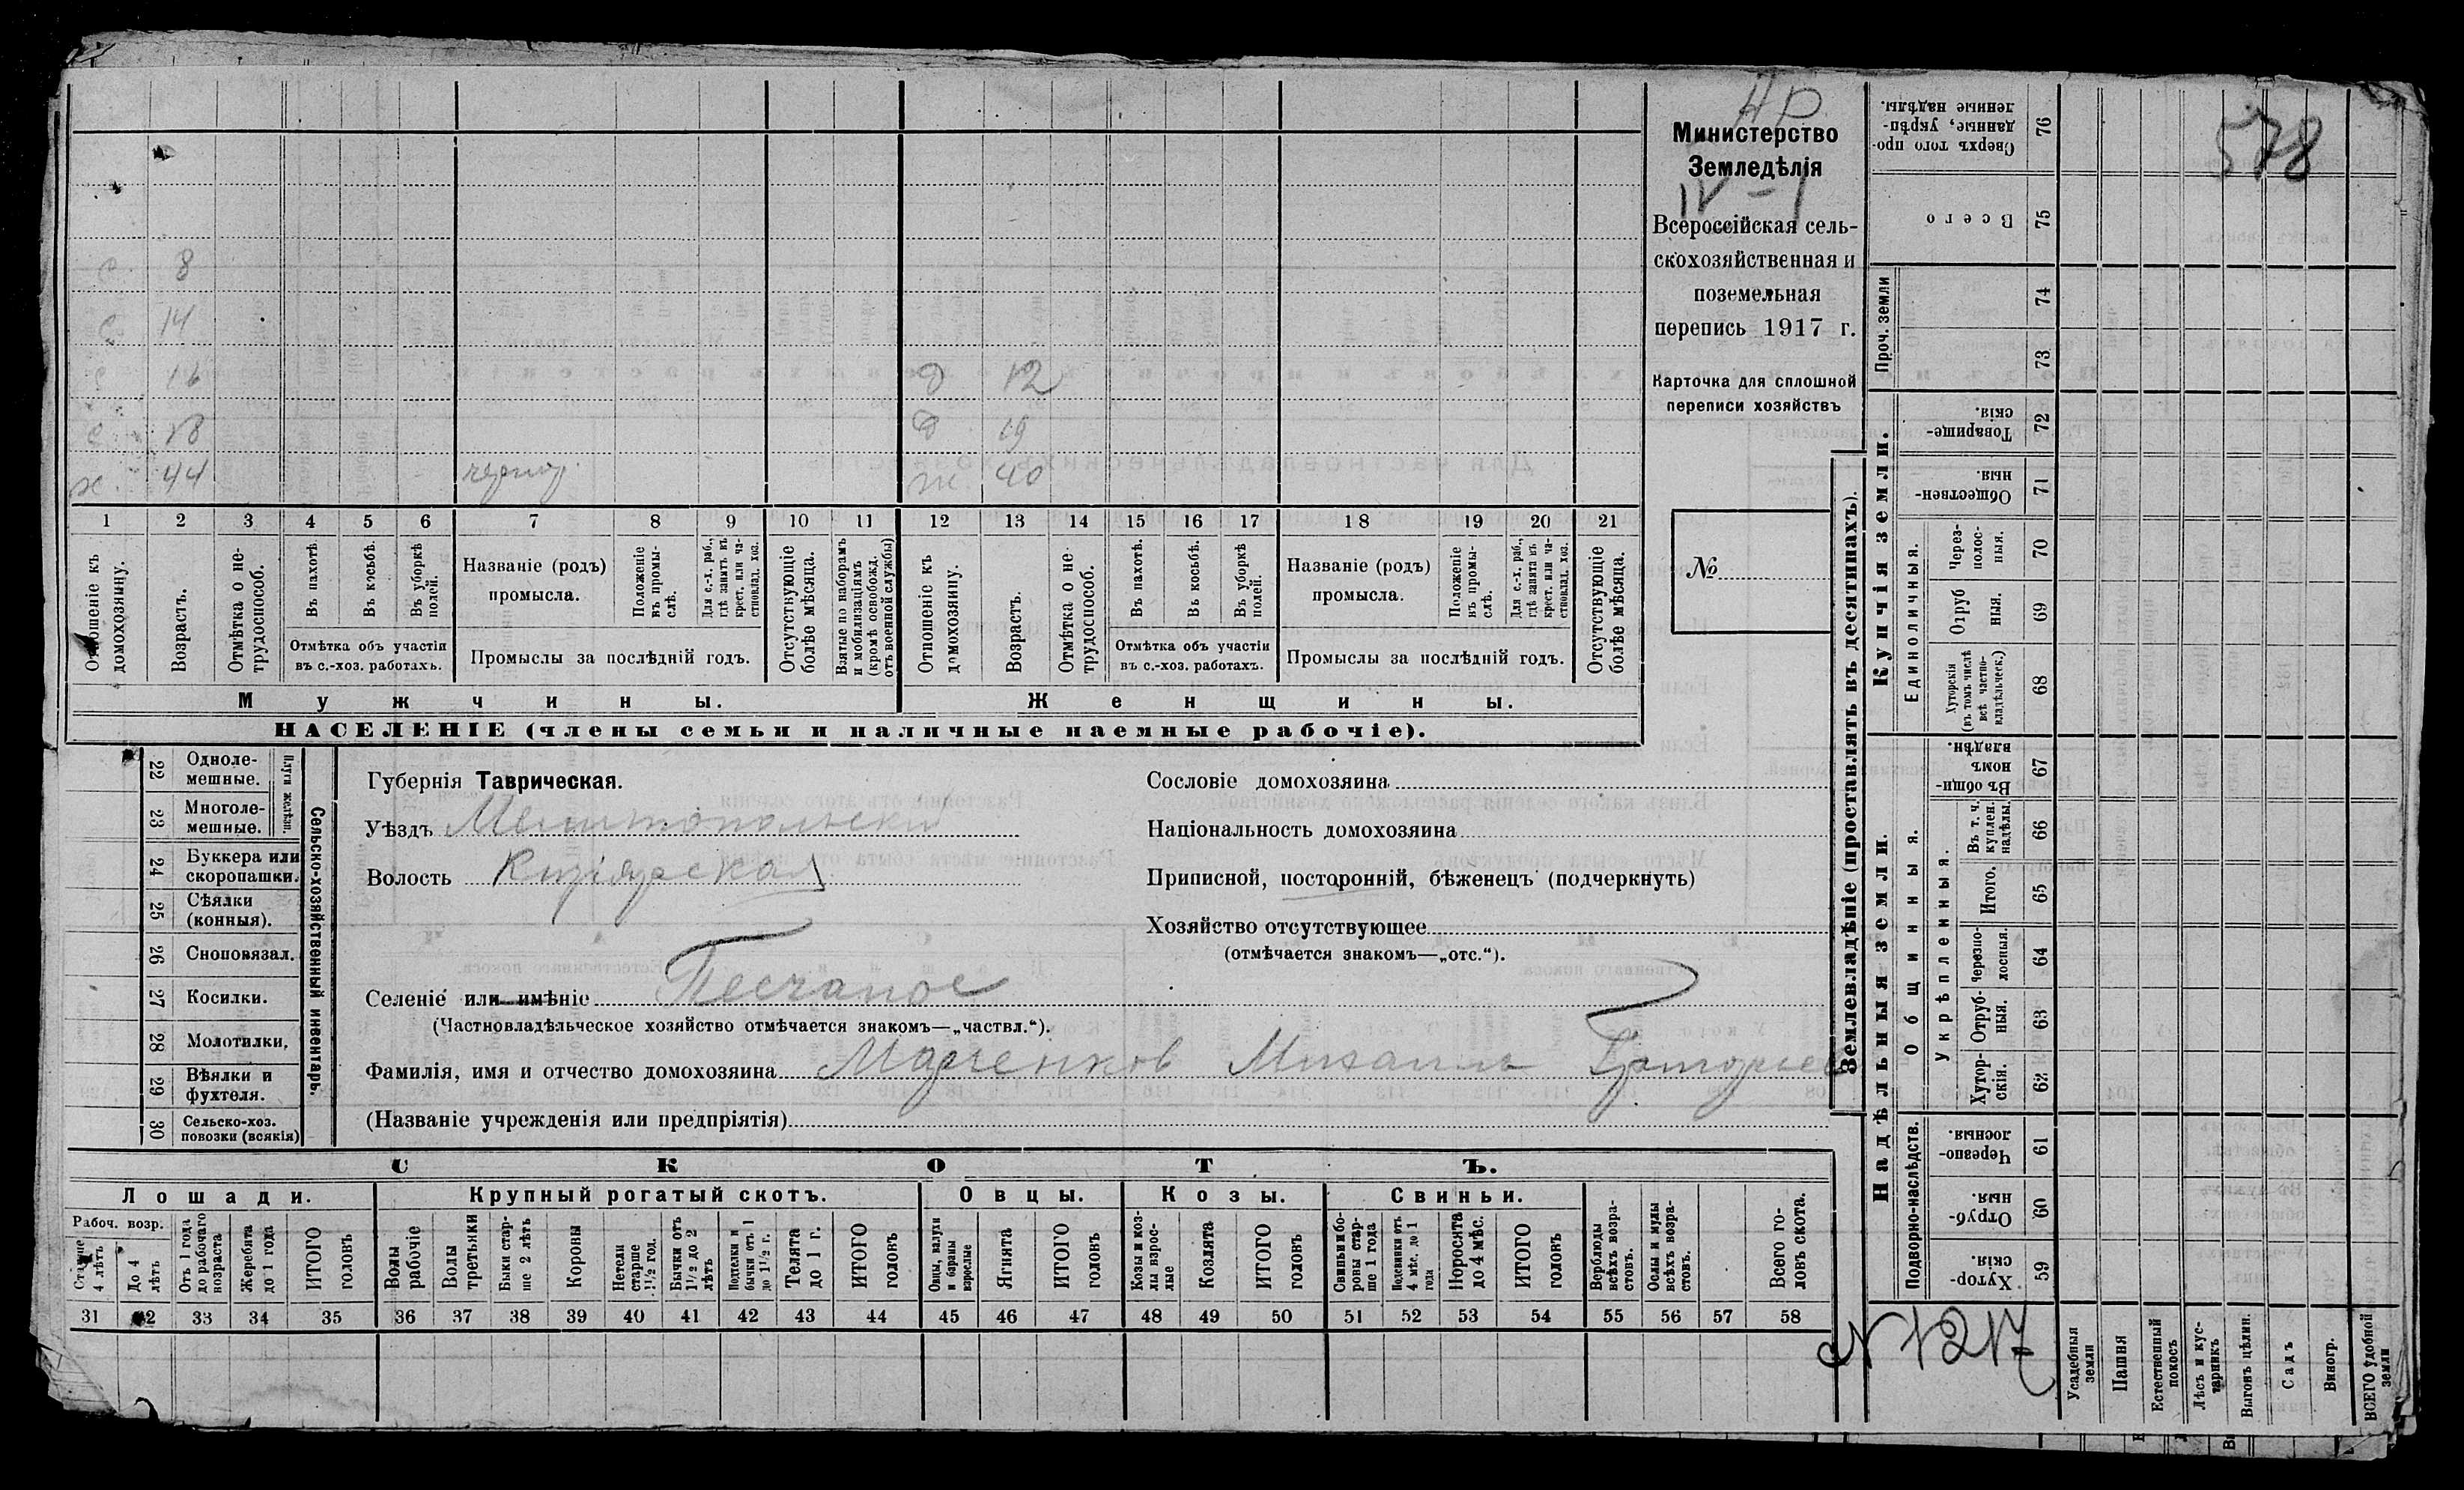 НР
Министерство
Земледѣлія
IV – I
Всероссійская сель-
скохозяйственная и
поземельная
перепись 1917 г.
Карточка для сплошной
переписи хозяйствъ
№
578
с 8
с 14
с 16 д 12
с 18 д 19
х 44 ж 40
1 2 3 4 5 6 7 8 9 10 11 12 13 14 15 16 17 18 19 20 21
Отношеніе къ домохозяину.
Возрастъ.
Отмѣтка о не-трудоспособ.
Въ пахотѣ.
Въ косьбѣ.
Въ уборкѣ полей.
Отмѣтка объ участіи
въ с.-хоз. работахъ.
Названіе (родъ)
промысла.
Положеніе въ промы-слѣ.
Для с.-х. раб., гдѣ занятъ въ крест. или ча-стновлад. хоз.
Промыслы за послѣдній годъ.
Отсутствующіе болѣе мѣсяца.
Взятые по наборамъ и мобилизаціямъ (кромѣ освобожд. отъ военной службы)
Отношеніе къ домохозяину.
Возрастъ.
Отмѣтка о не-трудоспособ.
Въ пахотѣ.
Въ косьбѣ.
Въ уборкѣ полей.
Отмѣтка объ участіи
въ с.-хоз. работахъ.
Названіе (родъ)
промысла.
Положеніе въ промы-слѣ.
Для с.-х. раб., гдѣ занята въ крест. или ча-стновлад. хоз.
Промыслы за послѣдній годъ.
Отсутствующіе болѣе мѣсяца.
Мужчины.
Женщины.
НАСЕЛЕНІЕ (члены семьи и наличные наемные рабочіе).
22 Одноле-мешные.
23 Многоле-мешные.
Плуги желѣзн.
24 Буккера или скоропашки.
25 Сѣялки (конныя).
26 Сноповязал.
27 Косилки.
28 Молотилки.
29 Вѣялки и фухтеля.
30 Сельско-хоз. повозки (всякія)
Сельско-хозяйственный инвентарь.
Губернія Таврическая.
Уѣздъ Мелитопольский
Волость Кизіярская
Селеніе или имѣніе Песчаное
(Частновладѣльческое хозяйство отмѣчается знакомъ—„частвл.“).
Фамилія, имя и отчество домохозяина Марченков Михаилъ Григорьев
(Названіе учрежденія или предпріятія)
Сословіе домохозяина
Національность домохозяина
Приписной, посторонній, бѣженецъ (подчеркнуть)
Хозяйство отсутствующее
(отмѣчается знакомъ—„отс.“).
СКОТЪ.
Лошади.
Крупный рогатый скотъ.
Овцы.
Козы.
Свиньи.
Рабоч. возр.
Старше 4 лѣтъ
До 4 лѣтъ
Отъ 1 года до рабочаго возраста
Жеребята до 1 года
ИТОГО головъ
Волы рабочіе
Волы третьяки
Быки стар-ше 2 лѣтъ
Коровы
Нетели старше 1½ год.
Бычки отъ 1½ до 2 лѣтъ
Подтелки и бычки отъ 1 до 1½ г.
Телята до 1 г.
ИТОГО головъ
Овцы, валухи и бараны взрослые
Ягнята
ИТОГО головъ
Козы и коз-лы взрос-лые
Козлята
ИТОГО головъ
Свиньи и бо-ровы стар-ше 1 года
Подсвинки отъ 4 мѣс. до 1 года
Поросята до 4 мѣс.
ИТОГО головъ
Верблюды всѣхъ возра-стовъ.
Ослы и мулы всѣхъ возра-стовъ.
Всего го-ловъ скота.
31 32 33 34 35 36 37 38 39 40 41 42 43 44 45 46 47 48 49 50 51 52 53 54 55 56 57 58
Землевладѣніе (проставлять въ десятинахъ).
Надѣльныя земли.
Купчія земли.
Проч. земли
Сверхъ того про-данные, укрѣп-ленные надѣлы. 76
Всего 75
74
73
Товарище-скія. 72
Обществен-ныя. 71
Единоличныя.
Через-полос-ныя. 70
Отруб ныя. 69
Хуторскія (въ томъ числѣ всѣ частно-владѣльческ.) 68
Общинныя.
Въ общи-номъ владѣн. 67
Укрѣпленныя.
Въ т. ч. куплен. надѣлы. 66
Итого. 65
Черезпо-лосныя. 64
Отруб-ныя. 63
Хутор-скія. 62
Подворно-наслѣдств.
Черезпо-лосныя. 61
Отруб-ныя. 60
Хутор-скія. 59
N 1217
Усадебныя земли
Пашня
Естественный покосъ
Лѣсъ и кус-тарникъ
Выгонъ цѣлин.
Садъ
Виногр.
ВСЕГО удобной земли